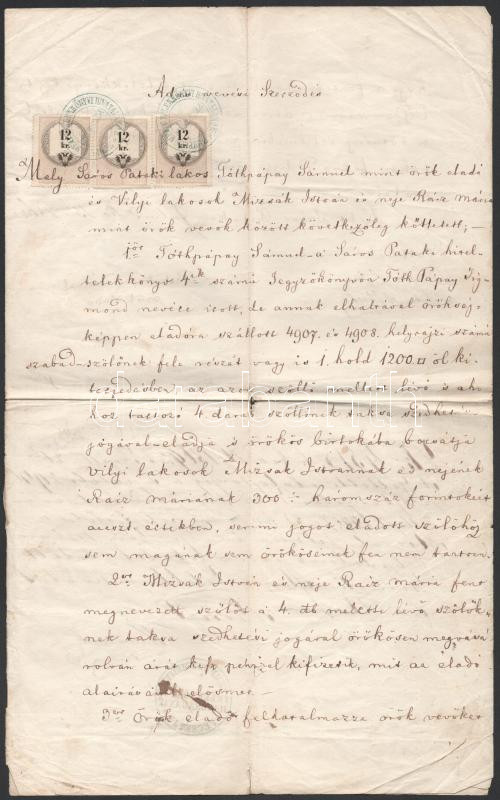 Adás vevési Szerződés
12 kr. 12 kr. 12 kr.
Mely Sáros Pataki lakos Tóthpápay Sámuel mint örök eladó
és Vilyi lakosok Mizsák István és neje Ráiz mária
mint örök vevők között következőleg köttetett; —
1ör Tóthpápay Sámuel a Sáros Pataki hitel-
telekkönyv 4ik számú Jegyzőkönyvön Tóth Pápay Zsig
mond nevére írott, de annak elhaltával örökség
képpen eladóra szállott 4907. és 4908. helyrajzi számú
szabad szőlőnek fele részét vagy is 1. hold 1200 □ öl ki
terjedésben, az azon szőllő mellett lévő s ah
hoz tartozó 4. darab szőllőnek takva szedhetési
jogával eladja s örökös birtokába bocsátja
Vilyi lakosok Mizsák Istvánnak és nejének
Ráiz máriának 300 háromszáz forintokért
sem magának sem örököseinek fen nem tartván.
2or Mizsák István és neje Ráiz mária fent
megnevezett szőlőt a 4. db mellette lévő szőlők-
nek takva szedhetési jogával örökösen megvevén
annak árát kész pénzzel kifizették, mit az eladó
aláírásával elösmer. —
3or Örök eladó felhatalmazza örök vevőket